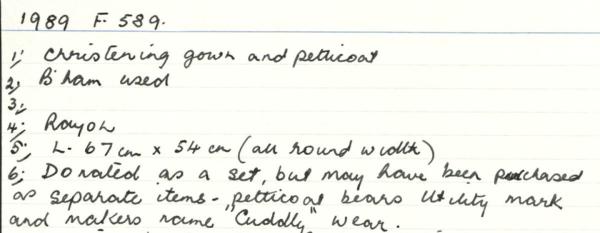 1989 F. 589.
1; Christening gown and petticoat
2; B'ham used
3;
4; Rayon
5; L. 67cm x 54 cm (all round width)
6; Donated as a set, but may have been purchased
as separate items - petticoat bears Utility mark
and makers name "Cuddly" wear.